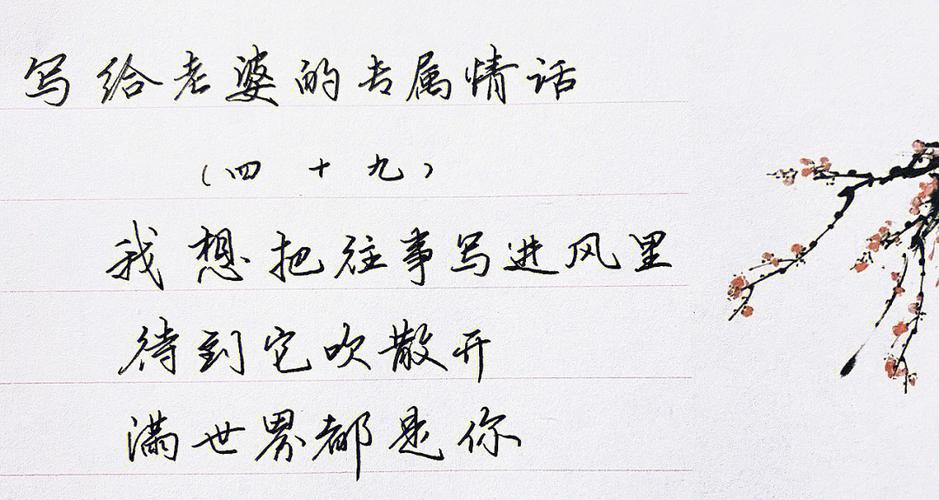 写给老婆的专属情话
（四十九）
我想把往事写进风里
待到它吹散开
满世界都是你